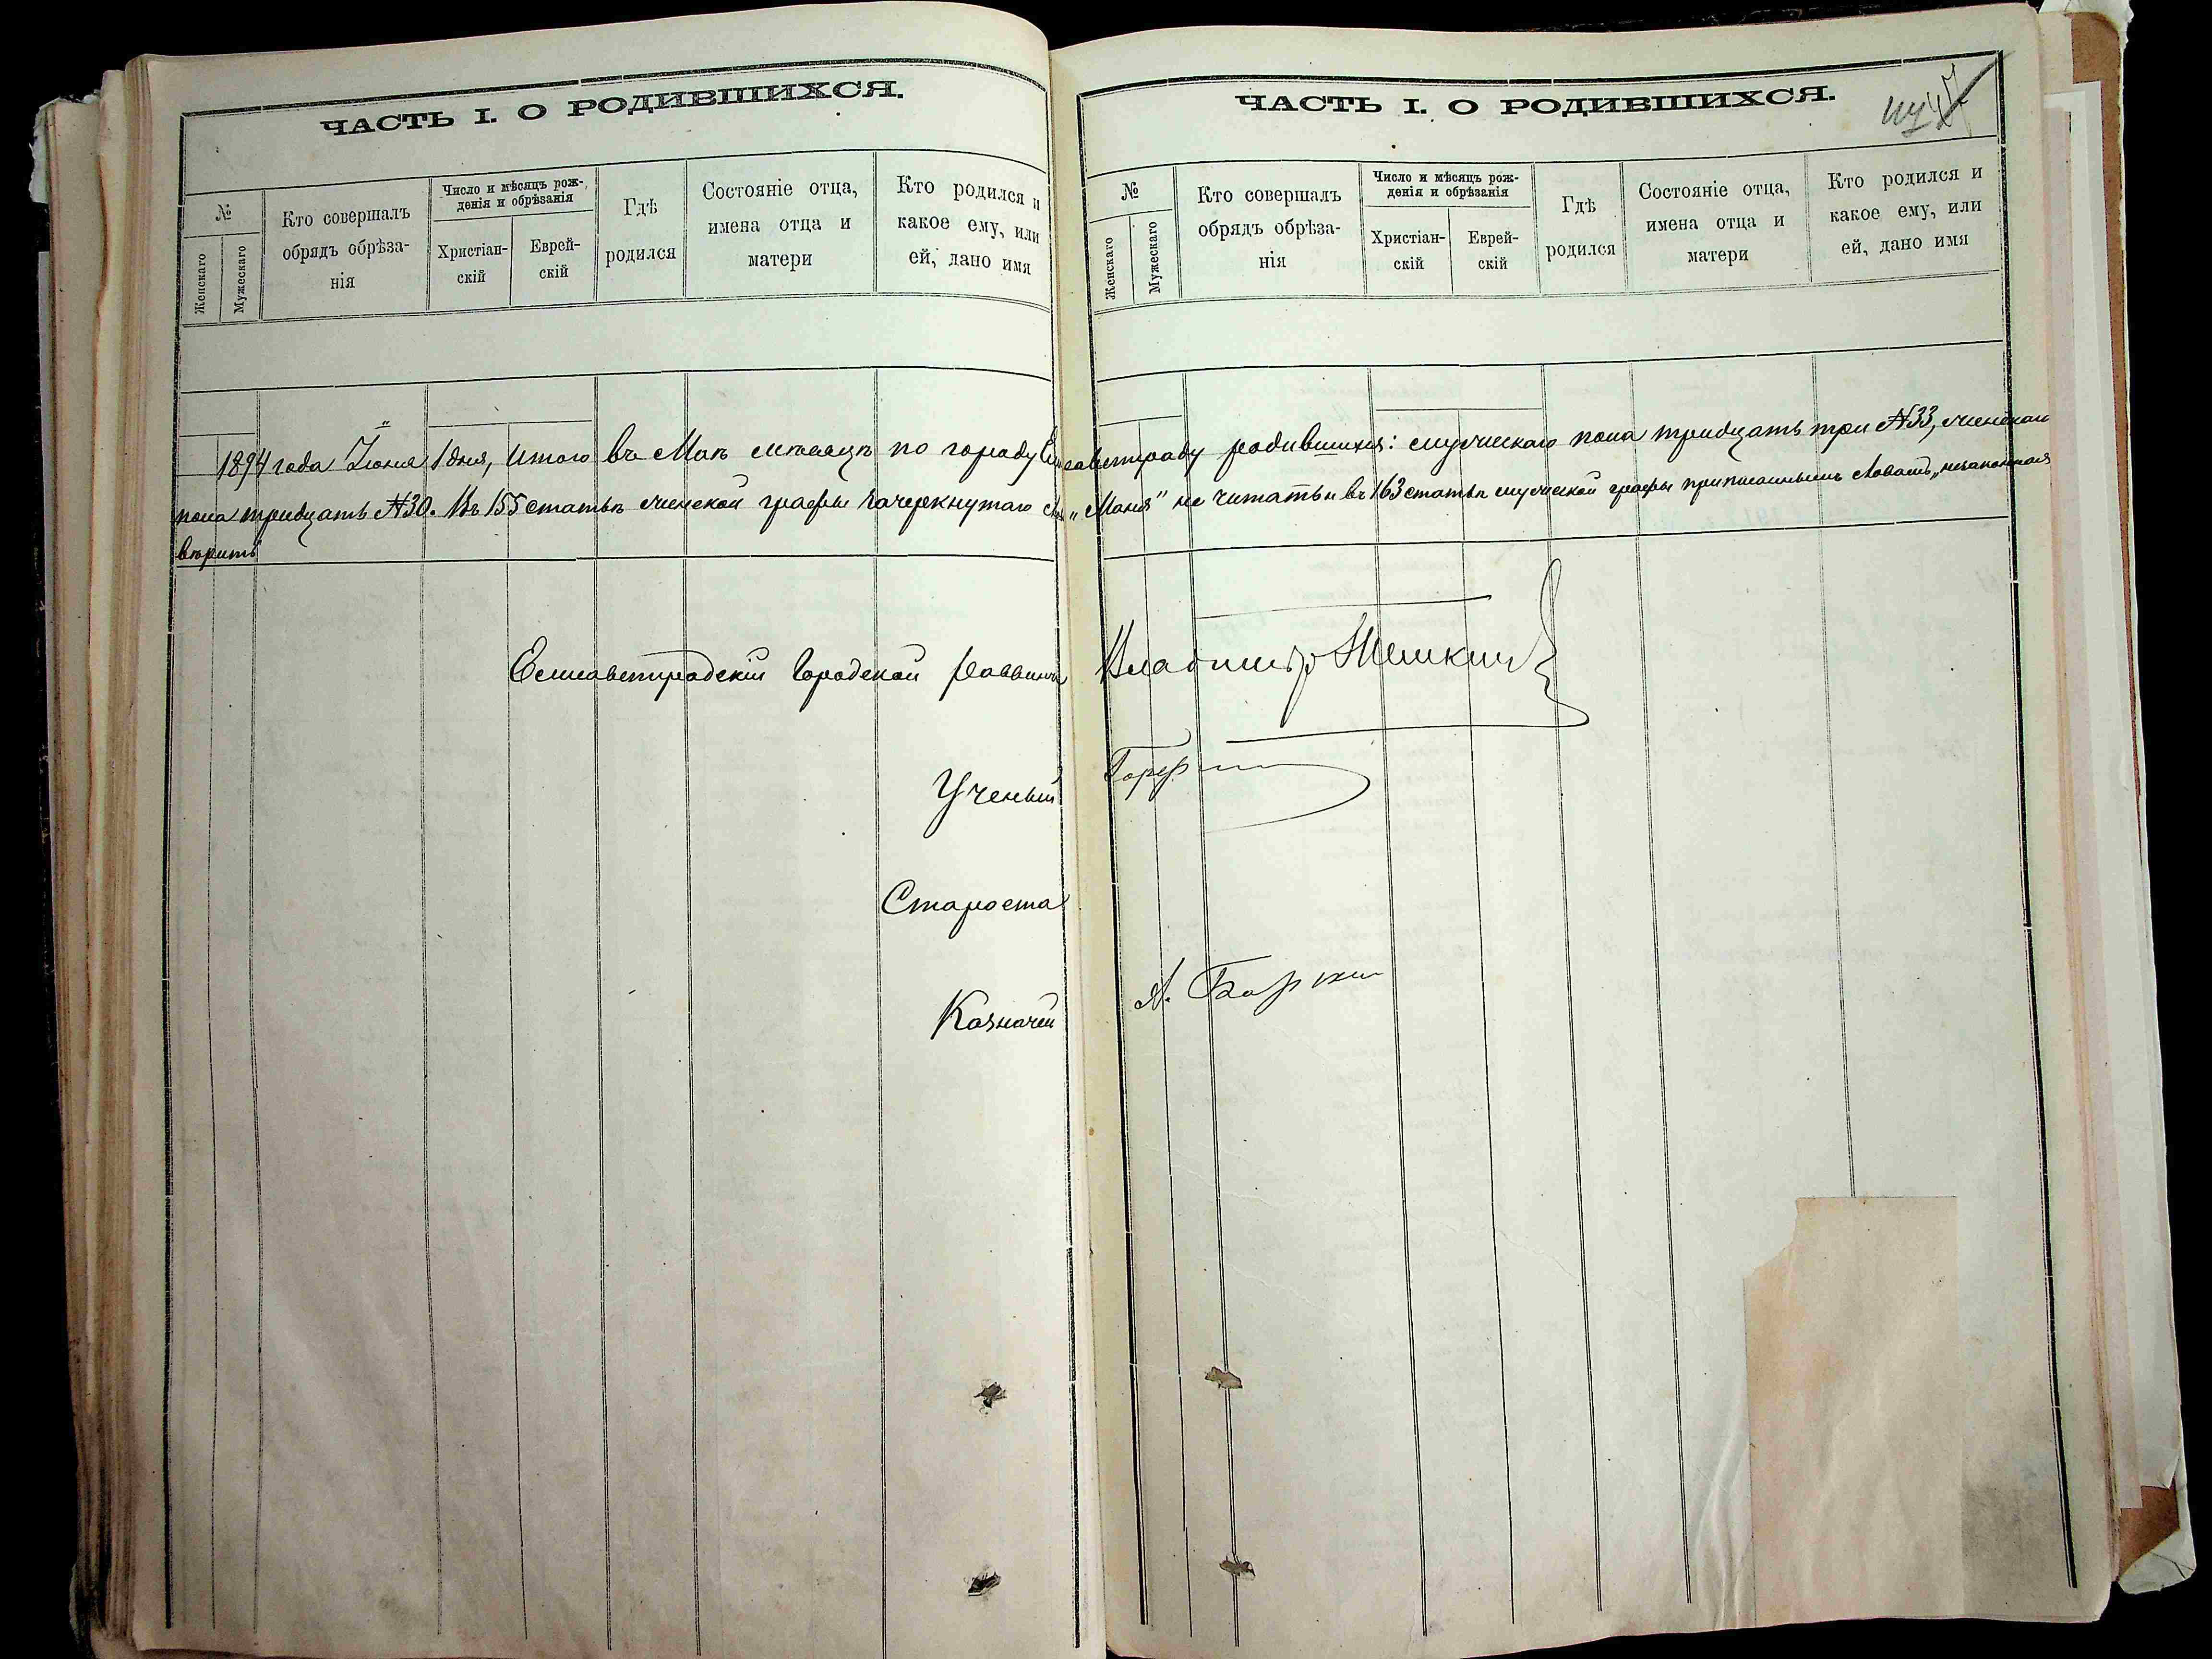 ЧАСТЬ I. О РОДИВШИХСЯ.
№
Женскаго
Мужескаго
Кто совершалъ
обрядъ обрѣза-
нія
Число и мѣсяцъ рож-
денія и обрѣзанія
Христіан-
скій
Еврей-
скій
Гдѣ
родился
Состояніе отца,
имена отца и
матери
Кто родился и
какое ему, или
ей, дано имя
ЧАСТЬ I. О РОДИВШИХСЯ.
№
Женскаго
Мужескаго
Кто совершалъ
обрядъ обрѣза-
нія
Число и мѣсяцъ рож-
денія и обрѣзанія
Христіан-
скій
Еврей-
скій
Гдѣ
родился
Состояніе отца,
имена отца и
матери
Кто родился и
какое ему, или
ей, дано имя
1894 года Іюня 1 дня, Итого въ Маѣ мѣсяцѣ по городу Елисаветграду родившихся: мужескаго пола тридцать три №33, женскаго
пола тридцать №30. Въ 155 статьѣ женской графы зачеркнутаго "Маня" не читать и въ 163 статьѣ мужеской графы приписаннымъ словамъ "незаконная
вѣрить
Елисаветградскій Городской Раввинъ Владиміръ
Ученый
Староста
Казначей